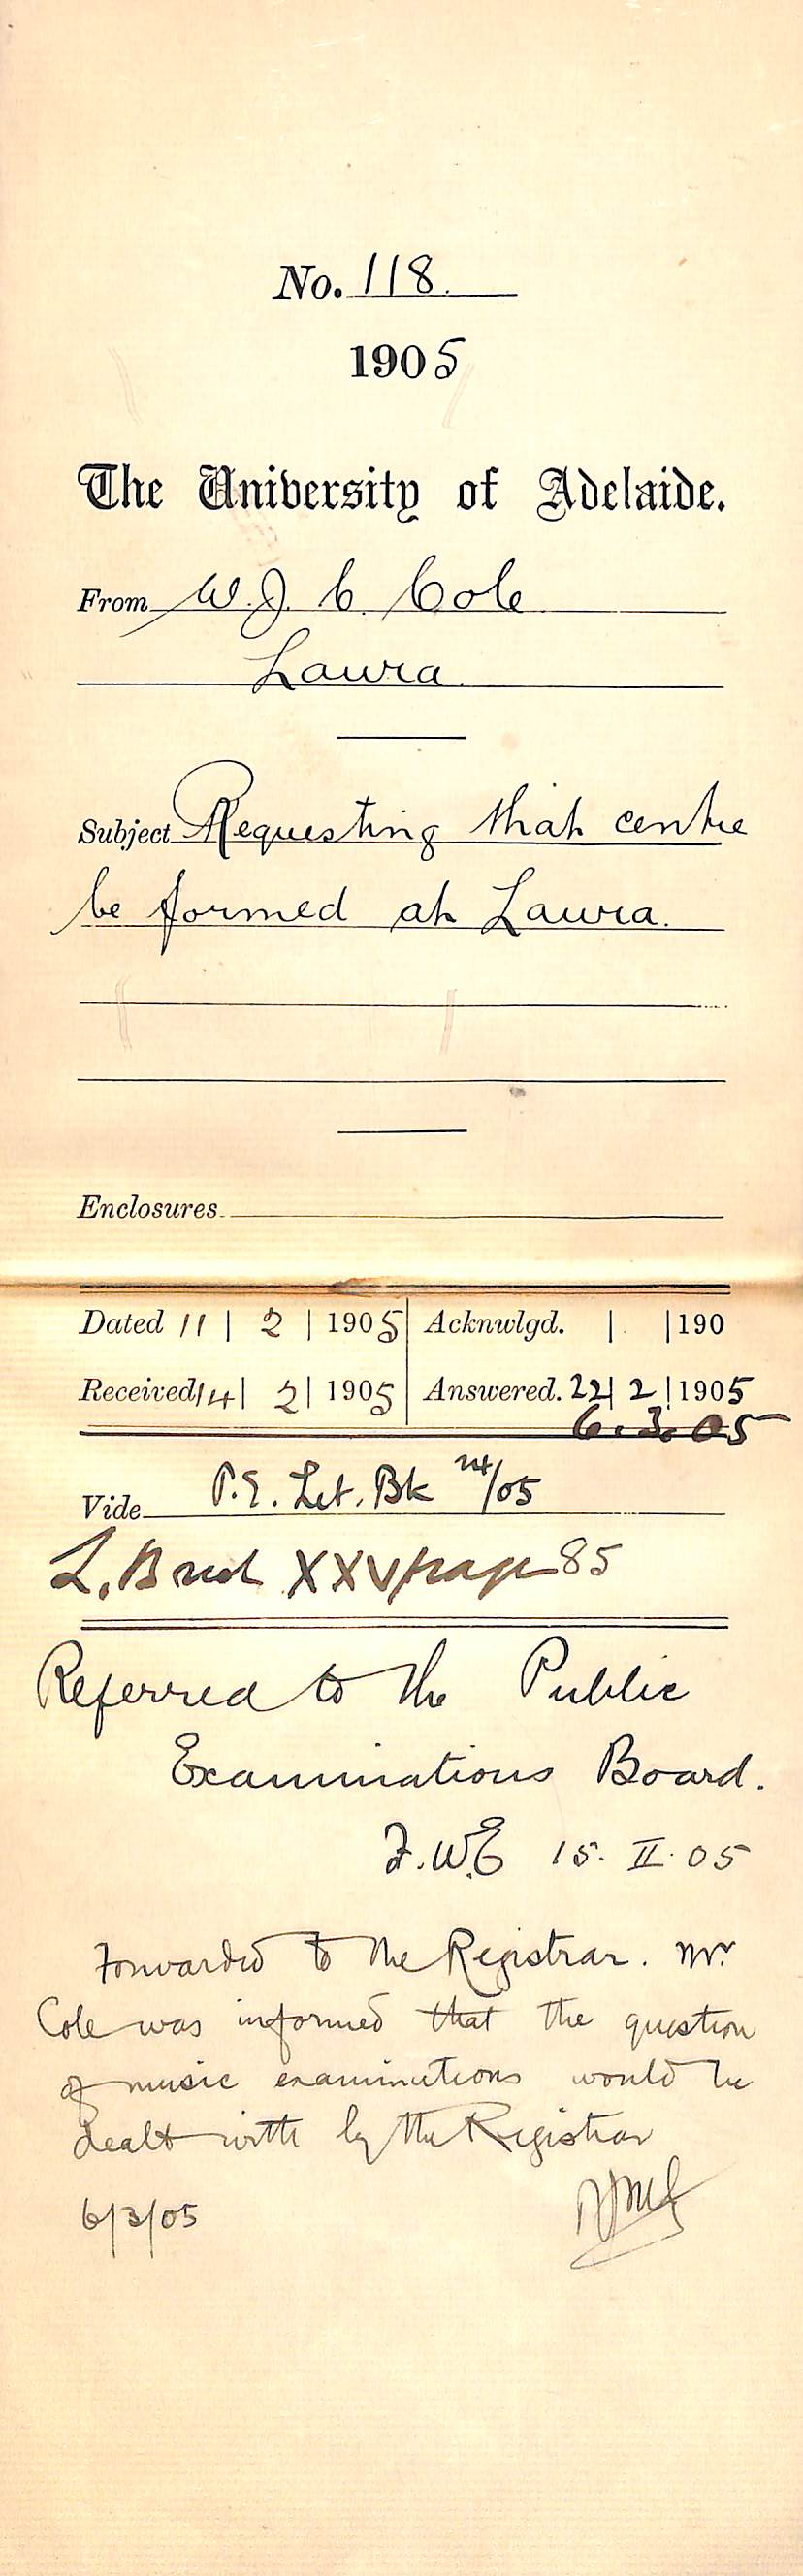 No. 118.
1905
The University of Adelaide.
From W. J. C. Cole
Laura.
Subject Requesting that centre
be formed at Laura.
Enclosures
Dated 11 | 2 | 1905 Acknwlgd. | | 190
Received 14 | 2 | 1905 Answered. 22 | 2 | 1905
6.3.05
Vide P.E. Let. Bk /05
L. B XXV page 85
Referred to the Public
Examinations Board.
F.W.E 15. II. 05
Forwarded to the Registrar. Mr.
Cole was informed that the question
of music examinations would be
dealt with by the Registrar
6/3/05